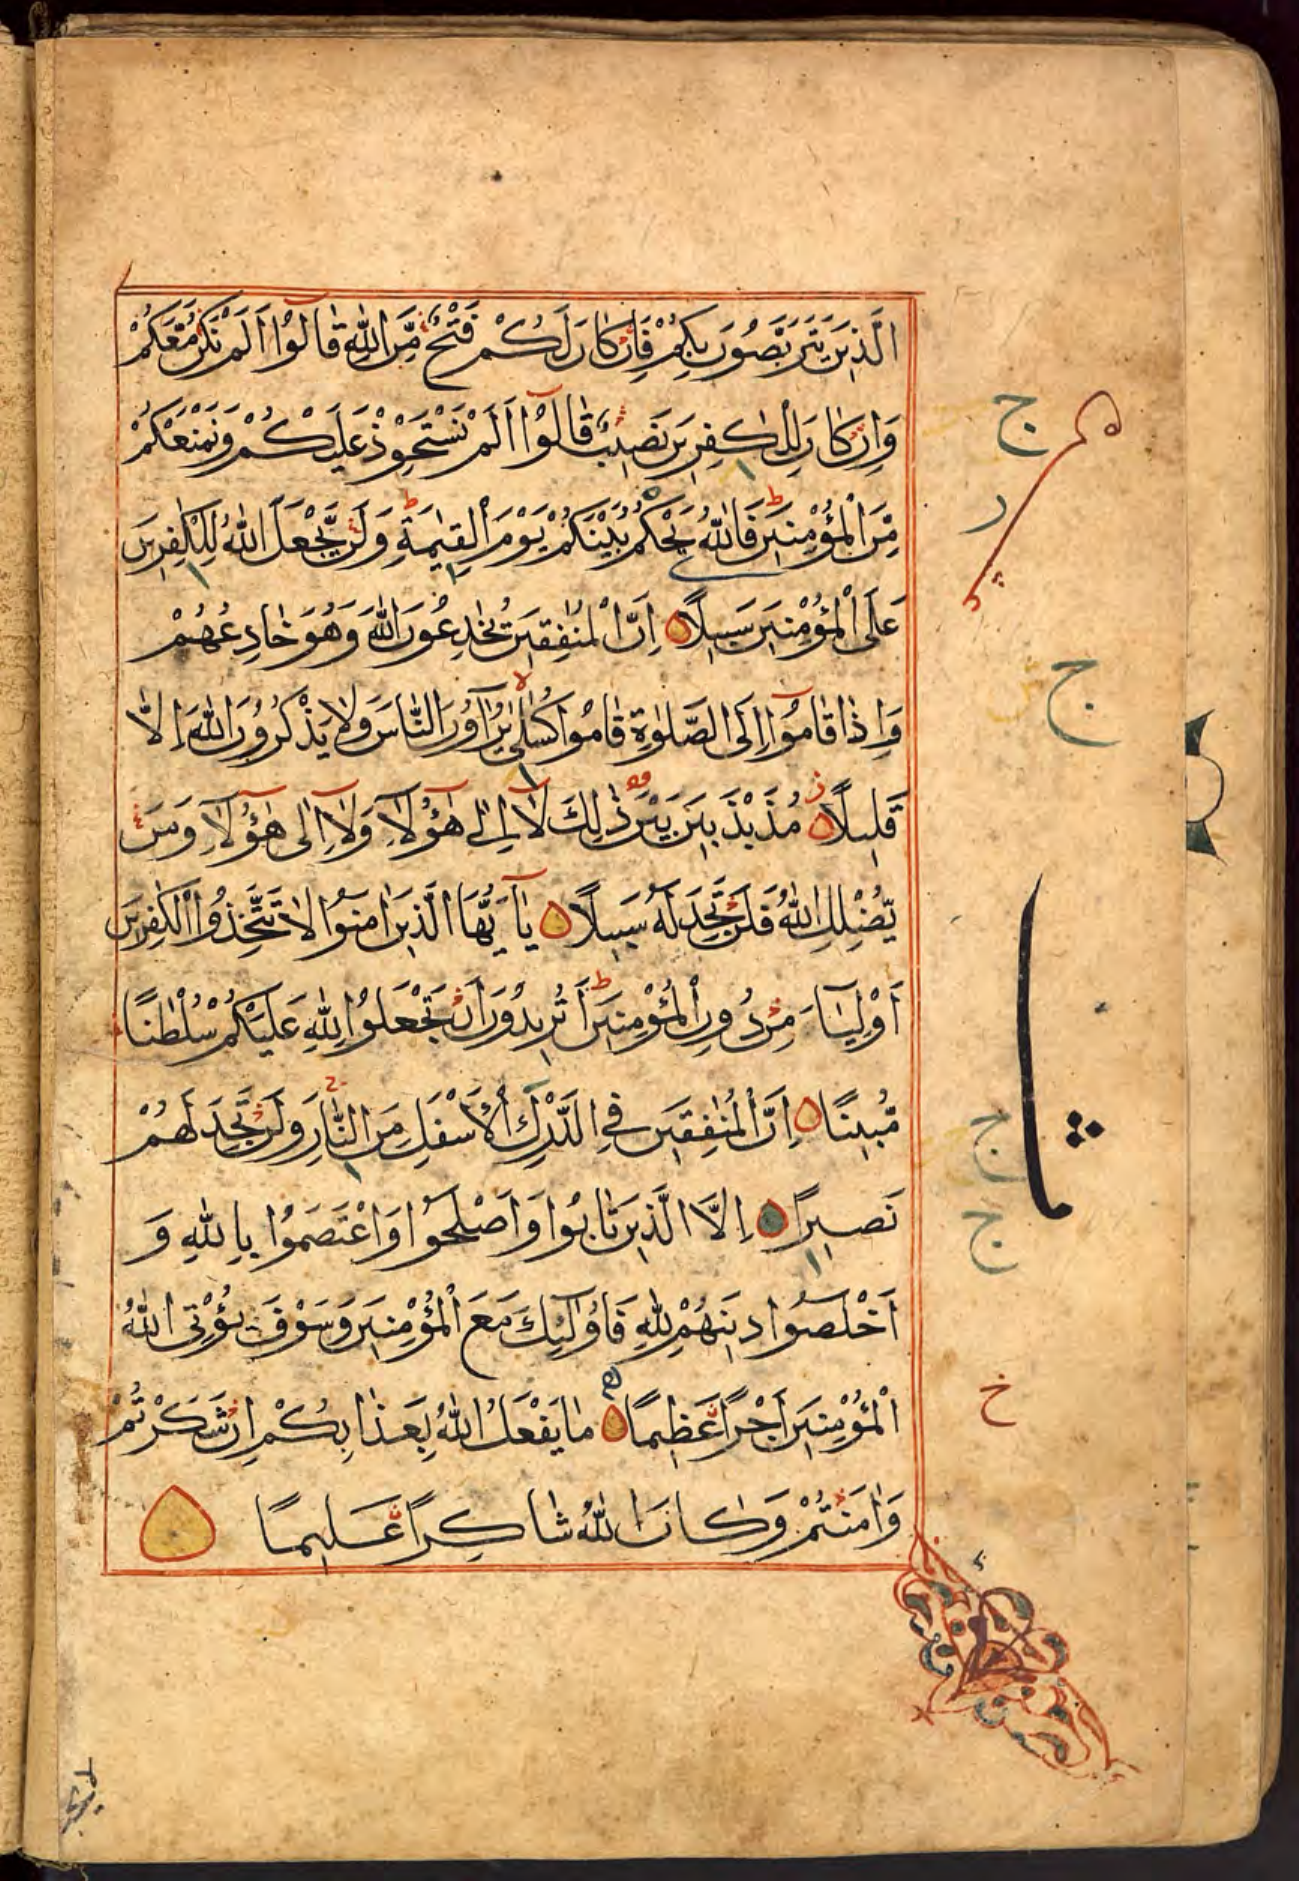 الَّذِينَ يَتَرَبَّصُونَ بِكُمْ فَإِنْ كَانَ لَكُمْ فَتْحٌ مِّنَ اللّٰهِ قَالُوٓا اَلَمْ نَكُنْ مَّعَكُمْ
وَاِنْ كَانَ لِلْكٰفِرِينَ نَصِيبٌ قَالُوٓا اَلَمْ نَسْتَحْوِذْ عَلَيْكُمْ وَنَمْنَعْكُمْ
مِّنَ الْمُؤْمِنِينَ فَاللّٰهُ يَحْكُمُ بَيْنَكُمْ يَوْمَ الْقِيٰمَةِ وَلَنْ يَّجْعَلَ اللّٰهُ لِلْكٰفِرِينَ
عَلَى الْمُؤْمِنِينَ سَبِيلًا اِنَّ الْمُنٰفِقِينَ يُخٰدِعُونَ اللّٰهَ وَهُوَ خَادِعُهُمْ
وَاِذَا قَامُوٓا اِلَى الصَّلٰوةِ قَامُوا كُسَالٰى يُرَآؤُنَ النَّاسَ وَلَا يَذْكُرُونَ اللّٰهَ اِلَّا
قَلِيلًا مُذَبْذَبِينَ بَيْنَ ذٰلِكَ لَآ اِلٰى هٰٓؤُلَآءِ وَلَآ اِلٰى هٰٓؤُلَآءِ وَمَنْ
يُّضْلِلِ اللّٰهُ فَلَنْ تَجِدَ لَهُ سَبِيلًا يَآ اَيُّهَا الَّذِينَ اٰمَنُوا لَا تَتَّخِذُوا الْكٰفِرِينَ
اَوْلِيَآءَ مِنْ دُونِ الْمُؤْمِنِينَ اَتُرِيدُونَ اَنْ تَجْعَلُوا لِلّٰهِ عَلَيْكُمْ سُلْطٰنًا
مُّبِينًا اِنَّ الْمُنٰفِقِينَ فِي الدَّرْكِ الْاَسْفَلِ مِنَ النَّارِ وَلَنْ تَجِدَ لَهُمْ
نَصِيرًا اِلَّا الَّذِينَ تَابُوا وَاَصْلَحُوا وَاعْتَصَمُوا بِاللّٰهِ وَ
اَخْلَصُوا دِينَهُمْ لِلّٰهِ فَاُولٰٓئِكَ مَعَ الْمُؤْمِنِينَ وَسَوْفَ يُؤْتِي اللّٰهُ
الْمُؤْمِنِينَ اَجْرًا عَظِيمًا مَا يَفْعَلُ اللّٰهُ بِعَذَابِكُمْ اِنْ شَكَرْتُمْ
وَاٰمَنْتُمْ وَكَانَ اللّٰهُ شَاكِرًا عَلِيمًا